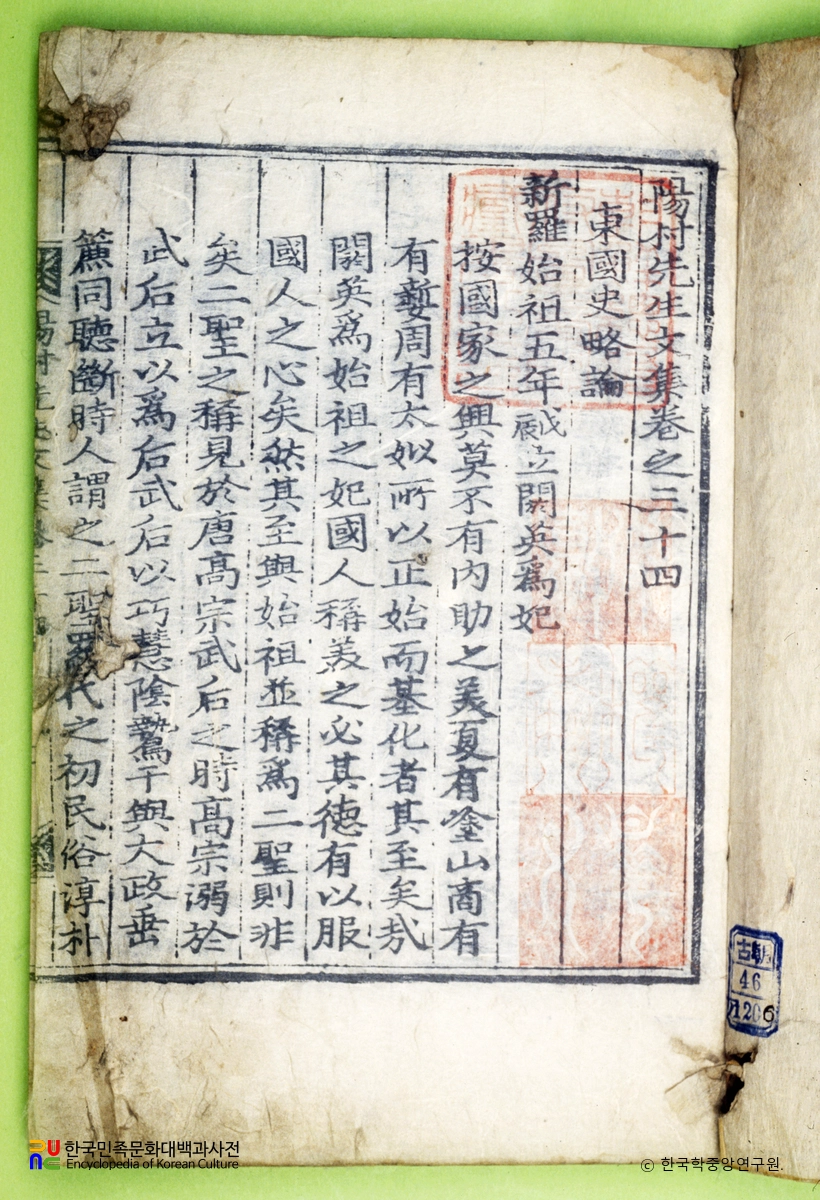 陽村先生文集卷之三十四
東國史略論
新羅始祖五年 立閼英爲妃
按國家之興莫不有內助之美夏有塗山商有
有㜪周有太姒所以正始而基化者其至矣哉
閼英爲始祖之妃國人稱美之必其德有以服
國人之心矣然其至與始祖並稱爲二聖則非
矣二聖之稱見於唐高宗武后之時高宗溺於
武后立以爲后武后以巧慧陰鷙干與大政垂
簾同聽斷時人謂之二聖羅代之初民俗淳朴
古朝
46
1206
한국민족문화대백과사전
Encyclopedia of Korean Culture
© 한국학중앙연구원.